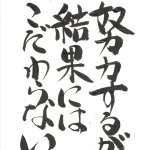 努力するが
結果には
こだわらない